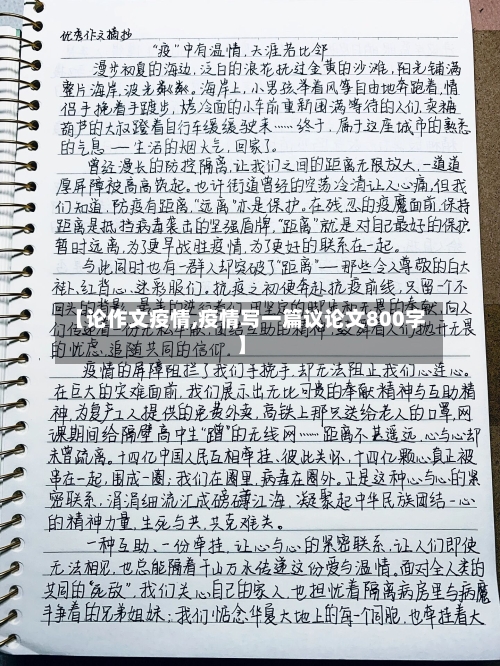 优秀作文摘抄
“疫”中有温情,天涯若比邻
漫步初夏的海边,泛白的浪花抚过金黄的沙滩,阳光铺满
整片海岸,波光粼粼。海岸上,小男孩举着风筝自由地奔跑着,情
侣手挽着手踱步,烤冷面的小车前重新围满等待的人们,卖糖
葫芦的大叔蹬着自行车缓缓驶来……终于,属于这座城市的熟悉
的气息——生活的烟火气,回家了。
曾经漫长的防控隔离,让我们之间的距离无限放大,一道道
厚屏障被高高筑起。也许街道曾经的空荡冷清让人心痛,但我
们知道,防疫有距离,“远离”亦是保护。在残忍的疫魔面前,保持
距离是抵挡病毒袭击的坚强盾牌,“距离”就是对自己最好的保护,
暂时远离,为了更早战胜疫情,为了更好的联系在一起。
与此同时也有一群人却突破了“距离”——那些令人尊敬的白大
褂、红背心、迷彩服们。抗疫之初便奔赴抗疫前线,只留一个不
回头的背影
【论作文疫情,疫情写一篇议论文800字
】
的忧虑,追随共同的信仰。
疫情的屏障阻拦了我们手挽手,却无法阻止我们心连心。
在巨大的灾难面前,我们展示出无比可贵的奉献精神与互助精
神,为复产工人提供的免费外卖,高铁上那只送给老人的口罩,网
课期间给隔壁高中生“蹭”的无线网……距离不甚遥远,心与心却
未曾疏离。十四亿中国人民互相牵挂、彼此关怀,十四亿颗心真正被
串在一起,围成一圈;我们在圈里,病毒在圈外。正是这种心与心的紧
密联系,涓涓细流汇成磅礴江海,凝聚起中华民族团结一心
的精神力量,生死与共,共克难关。
一种互助、一份牵挂,让心与心的紧密联系,让人们即使
无法相见,也总能隔着千山万水传递这份爱与温情。面对全人类的
共同的“死敌”,我们关心自己的家人,也担忧着隔离病房里与病魔
斗争着的兄弟姐妹;我们惦念华夏大地上的每一个同胞,也牵挂着大